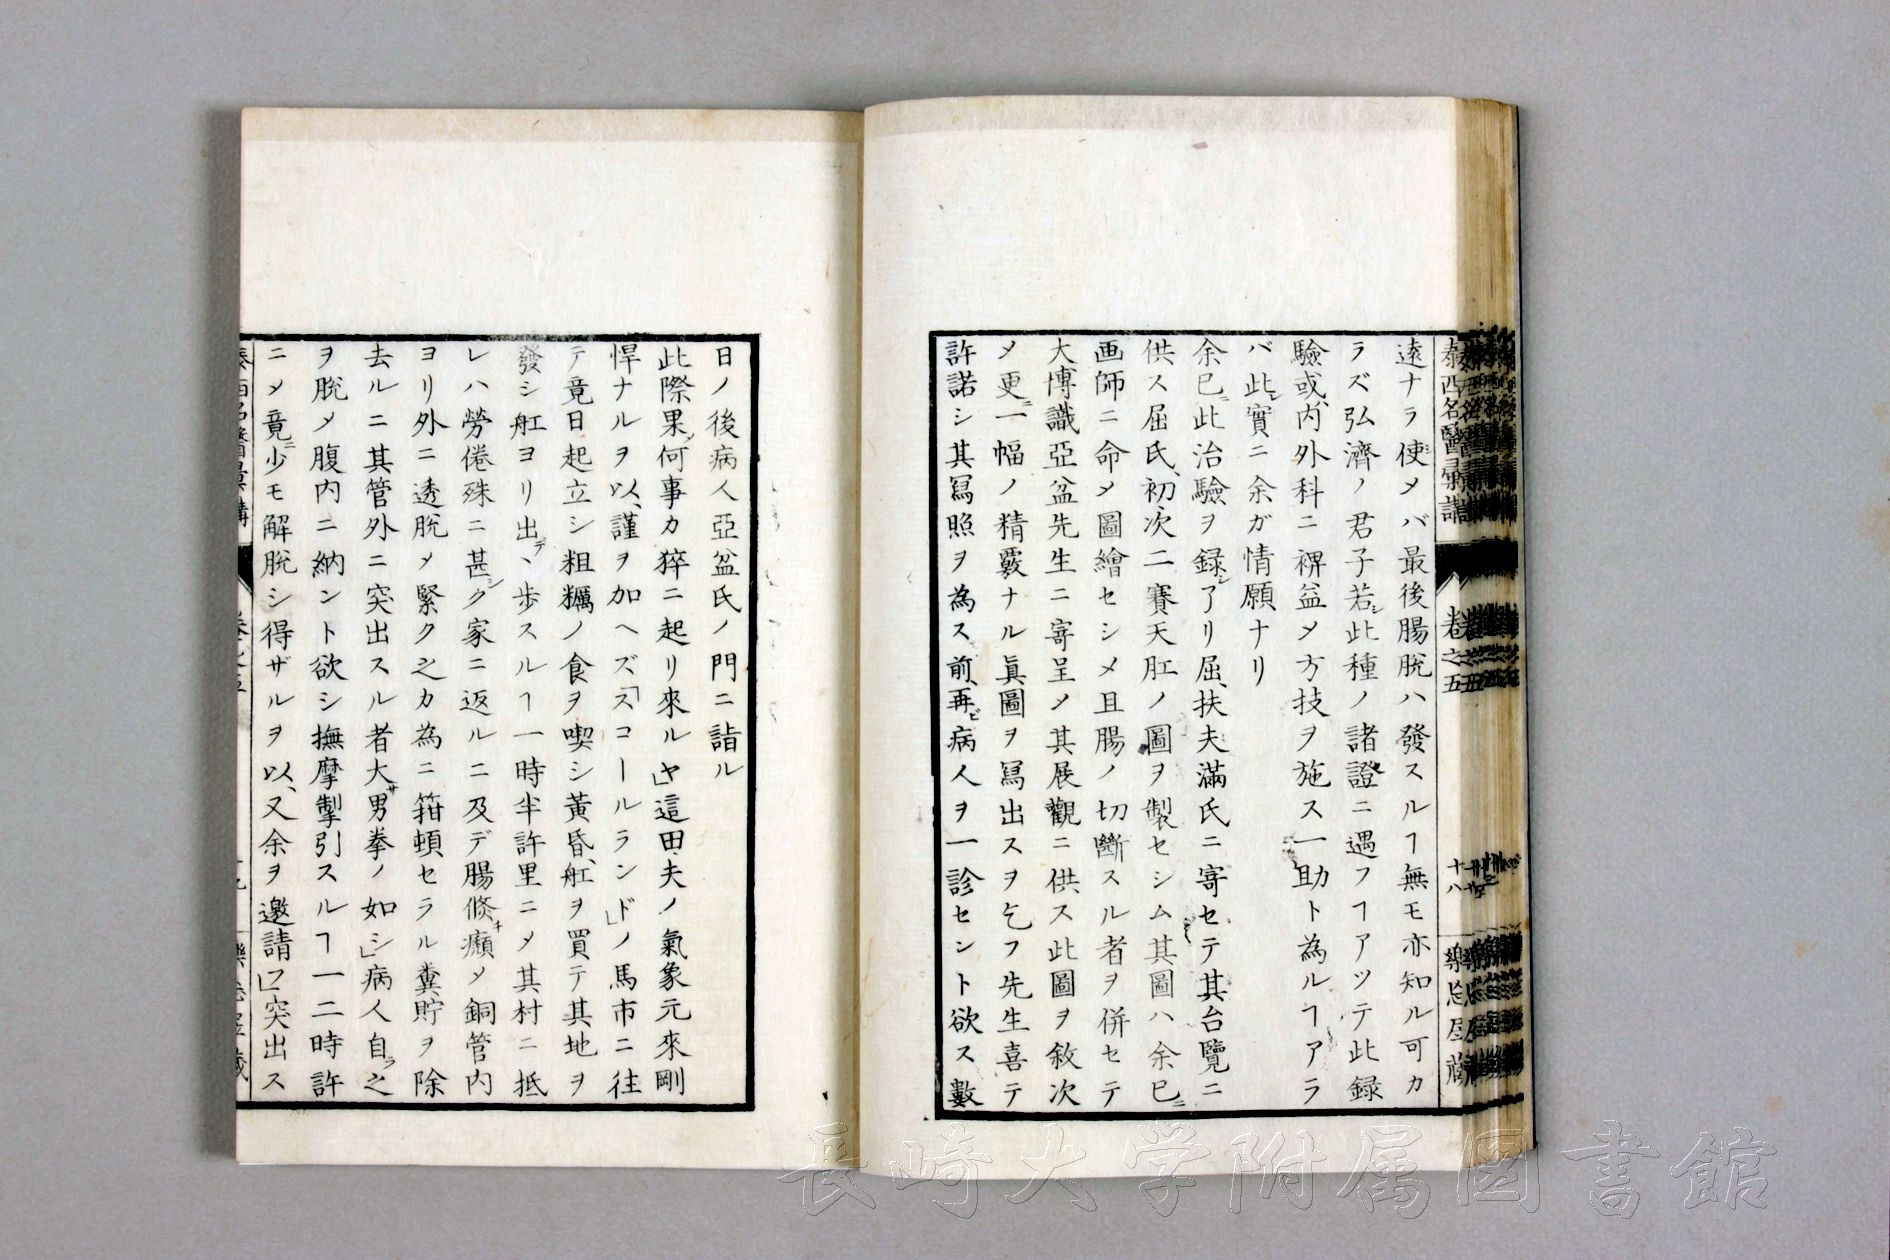 泰西名醫彙講 卷之五 十八
遠ナラ使メバ最後腸脫ハ發スルヿ無モ亦知ル可カ
ラズ弘濟ノ君子若シ此種ノ諸證ニ遇フヿアツテ此録
驗或内外科ニ裨益メ方技ヲ施ス一助ト為ルヿアラ
バ此レ實ニ余ガ情願ナリ
余已ニ此治驗ヲ録シアリ屈扶夫滿氏ニ寄セテ其台覽ニ
供ス屈氏初次二賽天肛ノ圖ヲ製セシム其圖ハ余已ニ
画師ニ命メ圖繪セシメ且腸ノ切斷スル者ヲ併セテ
大博識亞盆先生ニ寄呈メ其展觀ニ供ス此圖ヲ敘次
メ更ニ一幅ノ精覈ナル眞圖ヲ冩出スヲ乞フ先生喜テ
許諾シ其冩照ヲ為ス前再ビ病人ヲ一診セント欲ス數
日ノ後病人亞盆氏ノ門ニ詣ル
此際果何事カ猝ニ起リ來ルヤ」這田夫ノ氣象元來剛
悍ナルヲ以謹ヲ加ヘズ「スコールランド」ノ馬市ニ往
テ竟日起立シ粗糲ノ食ヲ喫シ黃昏舡ヲ買テ其地ヲ
發シ舡ヨリ出デヽ歩スルヿ一時半許里ニメ其村ニ抵
レハ勞倦殊ニ甚シク家ニ返ルニ及デ腸倏癪メ銅管内
ヨリ外ニ透脫メ緊ク之カ為ニ箝頓セラル糞貯ヲ除
去ルニ其管外ニ突出スル者大サ男拳ノ如シ」病人自ラ之
ヲ脫メ腹内ニ納ント欲シ撫摩掣引スルヿ一二時許
ニメ竟ニ少モ解脫シ得ザルヲ以又余ヲ邀請ス」突出ス